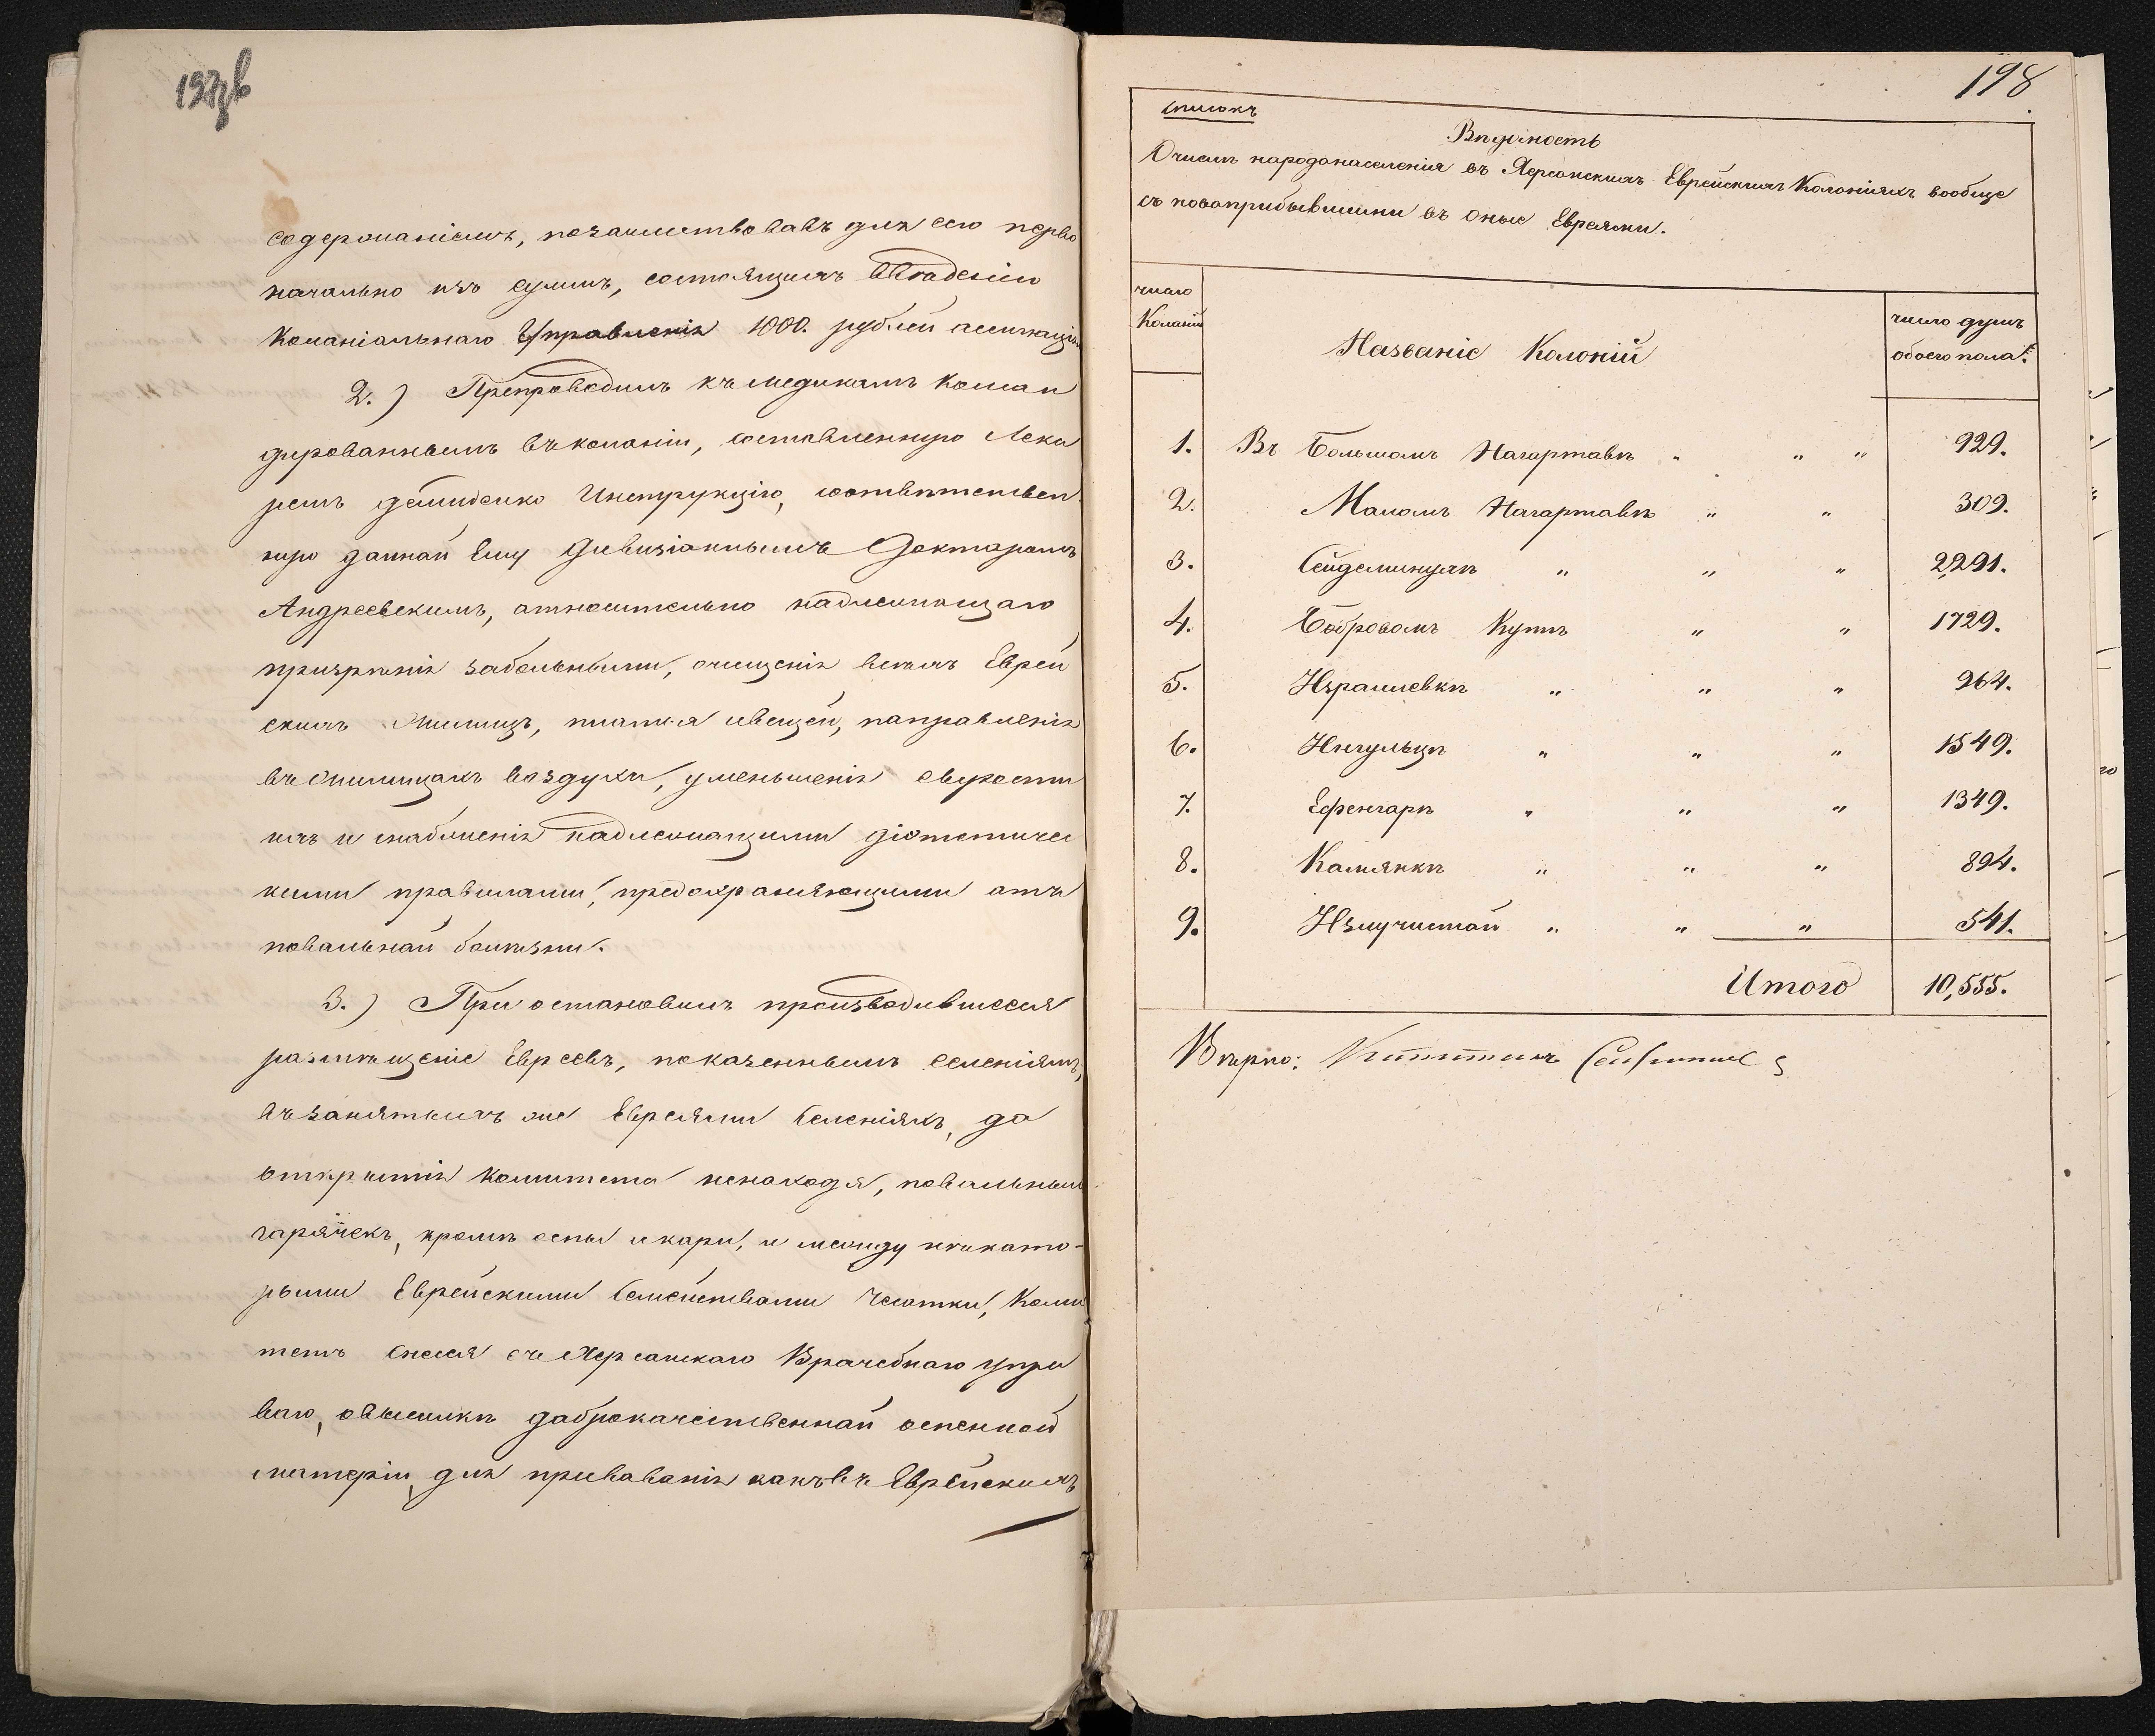 197 об
содержаніемъ, позаимствовавъ для сего перво
начально изъ суммъ, состоящихъ въ вѣденіи
Колоніальнаго Управленія 1000. рублей ассигнаціями
2.) Препроводилъ къ медикамъ коман
дированнымъ въ колоніи, составленную Лека
ремъ Демиденко Инструкцію, соотвѣтствен
ную данной Ему Дивизіоннымъ Докторомъ
Андреевскимъ, относительно надлежащаго
призрѣнія за больными, очищенія всѣхъ Еврей
скихъ жилищъ, платья и вещей, направленія
въ жилищахъ воздуха, уменьшенія сырости
ихъ и снабженія надлежащими діэтетичес
кими правилами, предохраняющими отъ
повальной болѣзни.
3.) Пріостановилъ производившееся
размѣщеніе Евреевъ, по казеннымъ селеніямъ,
въ занятыхъ же Евреями Селеніяхъ, до
открытія Комитета не находя, повальныхъ
горячекъ, кромѣ оспы и кори, и между нѣкото-
рыми Еврейскими Семействами Чесотки, Коми
тетъ снесся съ Херсонскою Врачебною упра
вою, о высылкѣ доброкачественной оспенной
матеріи, для прививанія какъ въ Еврейскихъ
198
Списокъ
Вѣдомость
О числѣ народонаселенія въ Херсонскихъ Еврейскихъ Колоніяхъ вообще
съ новоприбывшими въ оные Евреями.
число Колоній
Названіе Колоній
число душъ обоего пола.
1. Въ Большомъ Нагартавѣ " " " 929.
2. Маломъ Нагартавѣ " " 309.
3. Сейдеминухѣ " " " 2,291.
4. Бобровомъ Кутѣ " " 1729.
5. Израилевкѣ " " " 964.
6. Ингульцѣ " " " 1549.
7. Ефенгарѣ " " " 1349.
8. Камянкѣ " " " 894.
9. Излучистой " " " 541.
Итого 10,555.
Вѣрно: